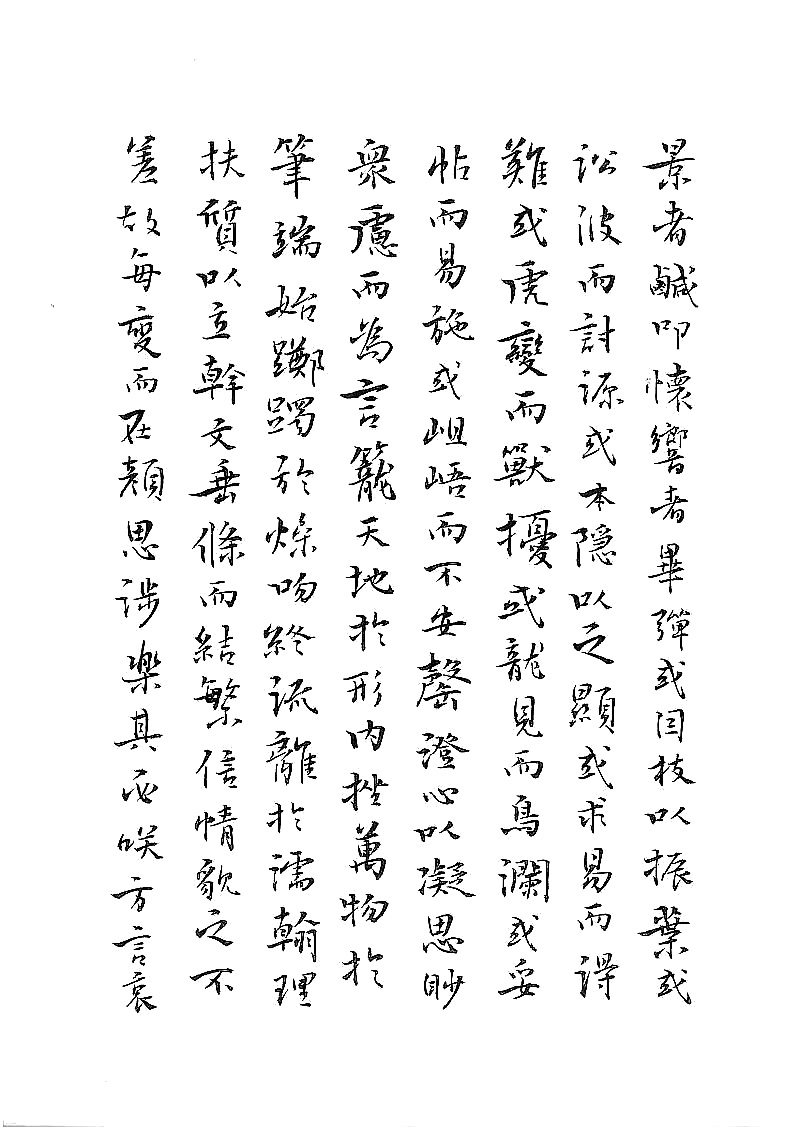 景者鹹叩懷響者畢彈或因枝以振葉或
訟波而討源或本隱以之顯或求易而得
難或虎變而獸擾或龍見而鳥瀾或妥
帖而易施或岨峿而不安罄澄心以凝思眇
衆慮而為言籠天地於形內挫萬物於
筆端始躑躅於燥吻終流離於濡翰理
扶質以立幹文垂條而結繁信情貌之不
差故每變而在顏思涉樂其必咲方言哀